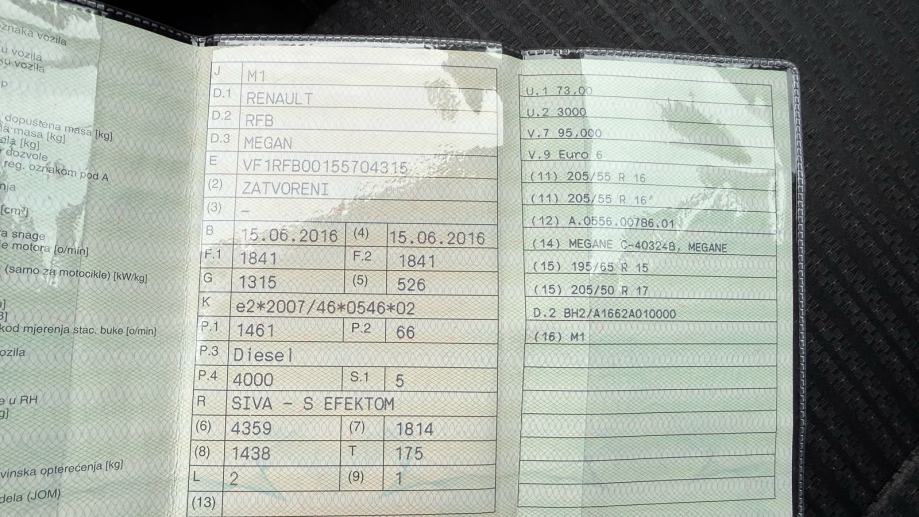 znaka vozila
u vozila
u vozila
dopuštena masa [kg]
a masa [kg]
ila [kg]
r dozvole
reg. oznakom pod A
[cm³]
a snage
e motora [o/min]
(samo za motocikle) [kW/kg]
kod mjerenja stac. buke [o/min]
ozila
e u RH
vinska opterećenja [kg]
dela (JOM)
J M1
D.1 RENAULT
D.2 RFB
D.3 MEGAN
E VF1RFB00155704315
(2) ZATVORENI
(3) –
B 15.06.2016 (4) 15.06.2016
F.1 1841 F.2 1841
G 1315 (5) 526
K e2*2007/46*0546*02
P.1 1461 P.2 66
P.3 Diesel
P.4 4000 S.1 5
R SIVA – S EFEKTOM
(6) 4359 (7) 1814
(8) 1438 T 175
L 2 (9) 1
(13)
U.1 73,00
U.2 3000
V.7 95,000
V.9 Euro 6
(11) 205/55 R 16
(11) 205/55 R 16
(12) A.0556.00786.01
(14) MEGANE C-40324B, MEGANE
(15) 195/65 R 15
(15) 205/50 R 17
D.2 BH2/A1662A010000
(16) M1